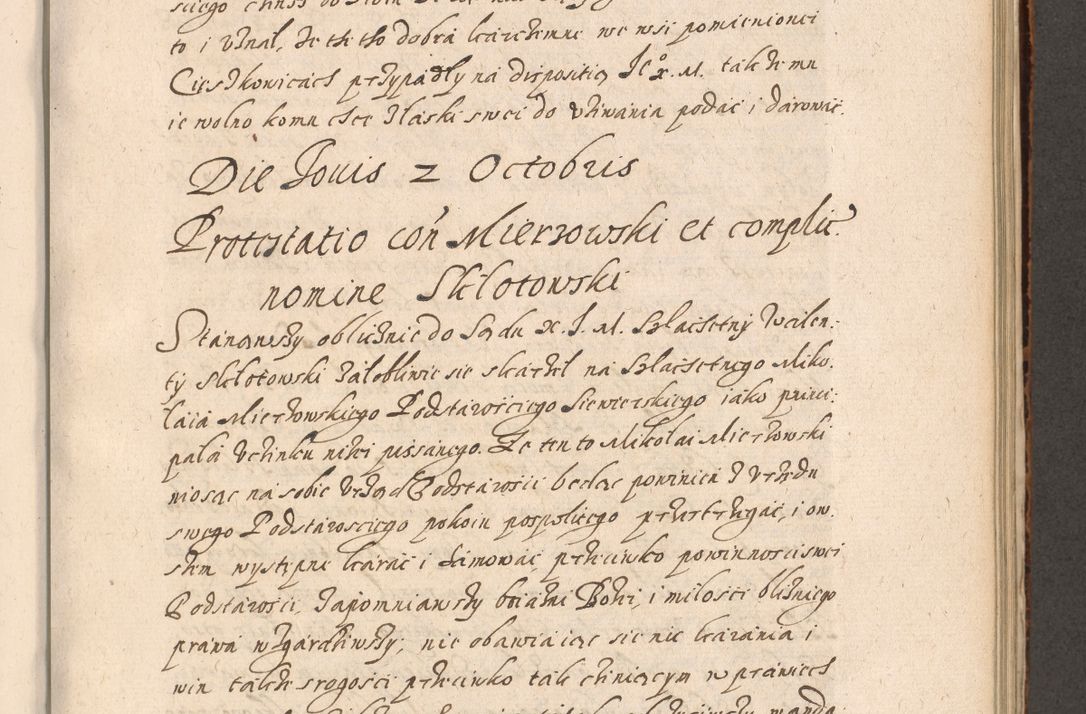 to i uznał, że te tho dobra karczemne we wsi pomienionei
Cięszkowicach przypadły na dispositią Ie° x. M. takze mu
ie wolno komu chce z łaski swei do używania podać i darować.
Die Jouis 2 Octobris
Protestatio con Mierzowski et complic.
nomine Skłotowski
Stanąwszy oblicznie do Sądu x. J. M. Szlachetny Walen:
ty Skłotowski żałobliwie sie skarzeł na Szlachetnego Miko.
łaia Mierzowskiego Podstarościego Siewierskiego iako princi:
pala uczinku nizei pissanego. Ze ten to Mikołai Mierzowski
niosąc na sobie urząd Podstarości będąc powinien z urzędu
swego Podstarosciego pokoiu pospolitego przestrzegać, i ow.
szem występne karać i hamować, przeciwko powinnosci swei
Podstarości, zapomniawszy boiaźni Bożei, i milości bliżniego
prawa wzgardziwszy, nie obawiaiąc sie nic karania i
win takze srogości przeciwko tak cziniącym w prawiech